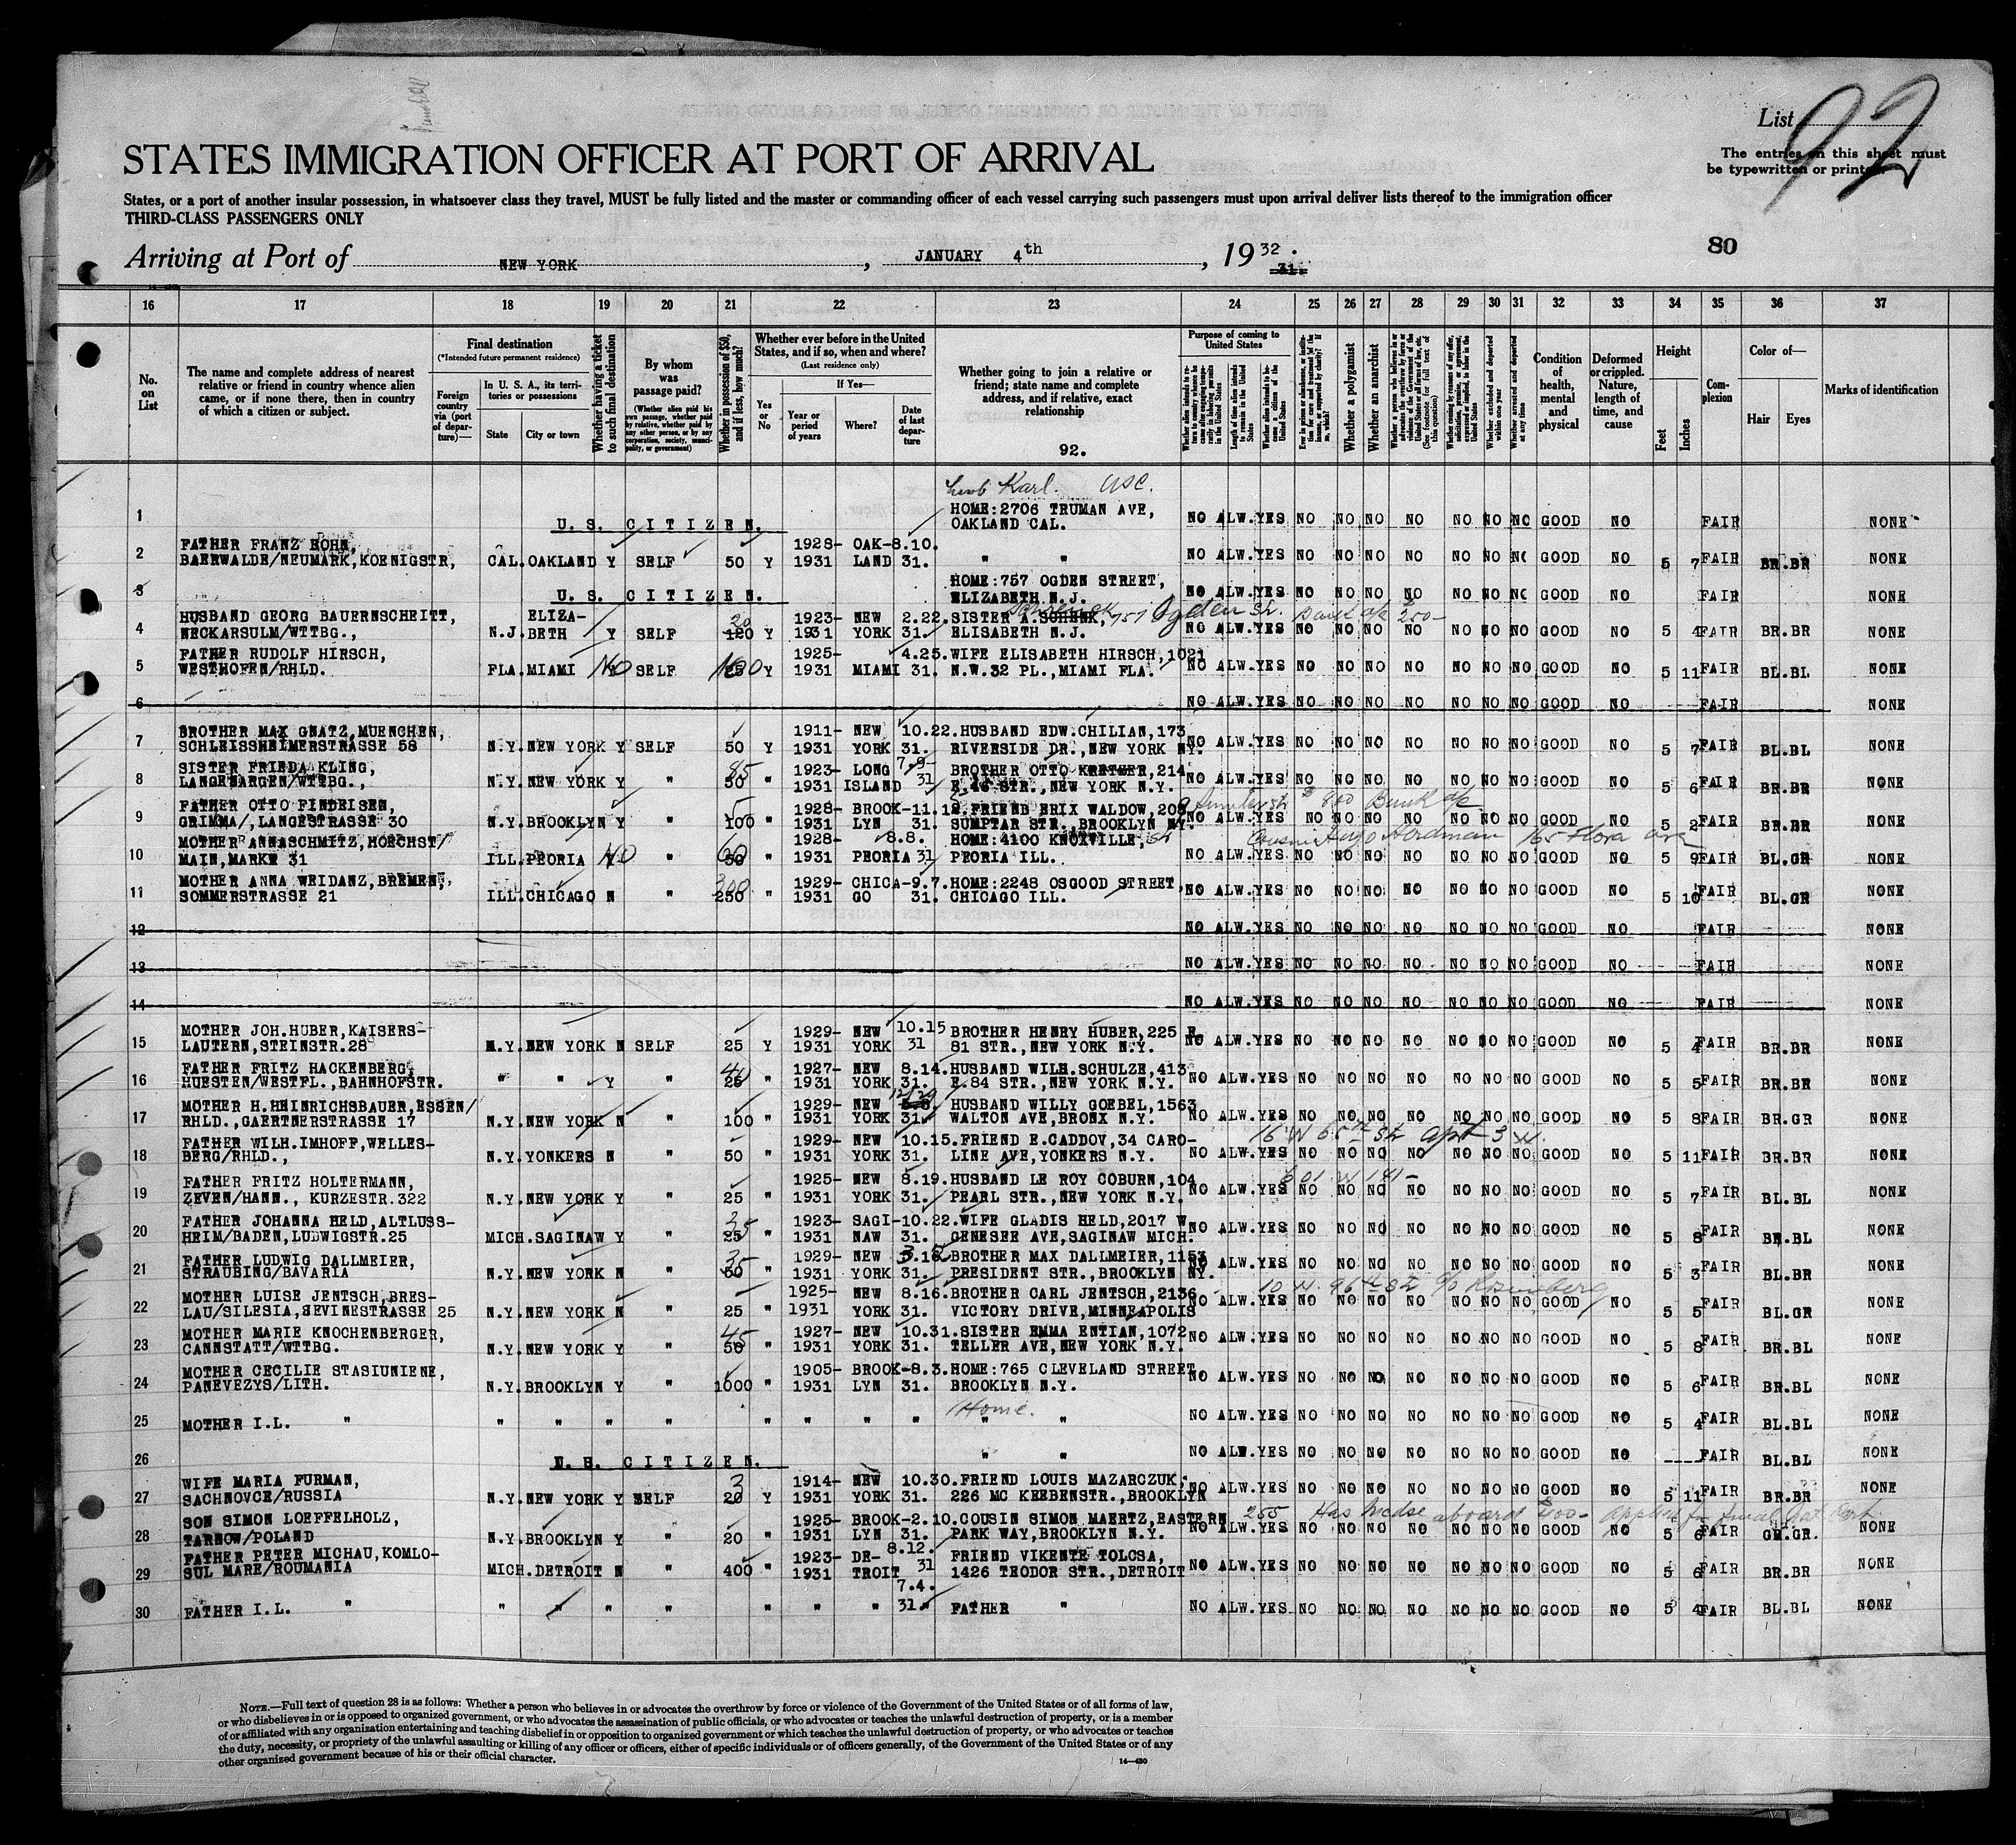 List 92
STATES IMMIGRATION OFFICER AT PORT OF ARRIVAL
The entries on this sheet must
be typewritten or printed.
States, or a port of another insular possession, in whatsoever class they travel, MUST be fully listed and the master or commanding officer of each vessel carrying such passengers must upon arrival deliver lists thereof to the immigration officer
THIRD-CLASS PASSENGERS ONLY
80
Arriving at Port of NEW YORK, JANUARY 4th, 19 32. 31.
16 17 18 19 20 21 22 23 24 25 26 27 28 29 30 31 32 33 34 35 36 37
No. on List
The name and complete address of nearest relative or friend in country whence alien came, or if none there, then in country of which a citizen or subject.
Final destination
(*Intended future permanent residence)
Foreign country via (port of departure)—
In U. S. A., its territories or possessions
State
City or town
Whether having a ticket to such final destination
By whom was passage paid?
(Whether alien paid his own passage, whether paid by relative, whether paid by any other person, or by any corporation, society, municipality, or government)
Whether in possession of $50, and if less, how much?
Whether ever before in the United States, and if so, when and where?
(Last residence only)
Yes or No
If Yes—
Year or period of years
Where?
Date of last departure
Whether going to join a relative or friend; state name and complete address, and if relative, exact relationship
92.
Purpose of coming to United States
Length of time alien intends to remain in the United States
Whether alien intends to become a citizen of the United States
Whether a polygamist
Whether an anarchist
(See footnote for full text of this question)
Whether excluded and deported within one year
Whether arrested and deported at any time
Condition of health, mental and physical
Deformed or crippled. Nature, length of time, and cause
Height
Feet
Inches
Complexion
Color of—
Hair
Eyes
Marks of identification
Karl. USC.
1 U. S. CITIZEN. HOME:2706 TRUMAN AVE, OAKLAND CAL. NO ALW. YES NO NO NO NO NO NO NO GOOD NO FAIR NONE
2 FATHER FRANZ HOHN, BAERWALDE/NEUMARK,KOENIGSTR, CAL. OAKLAND Y SELF 50 Y 1928-1931 OAKLAND 8.10.31. " " NO ALW. YES NO NO NO NO NO NO NO GOOD NO 5 7 FAIR BR.BR NONE
3 U. S. CITIZEN. HOME:757 OGDEN STREET, ELIZABETH N.J. NO ALW. YES NO NO NO NO NO NO NO GOOD NO FAIR NONE
4 HUSBAND GEORG BAUERNSCHEITT, NECKARSULM/WTTBG., N.J. ELIZABETH Y SELF 120 20 Y 1923-1931 NEW YORK 2.22.31. SISTER A.SCHENK, 757 Ogden St. ELISABETH N.J. Bank a/c $250- NO ALW. YES NO NO NO NO NO NO NO GOOD NO 5 4 FAIR BR.BR NONE
5 FATHER RUDOLF HIRSCH, WESTHOFEN/RHLD. FLA. MIAMI NO SELF 100 Y 1925-1931 MIAMI 4.25.31. WIFE ELISABETH HIRSCH,1021 N.W.32 PL.,MIAMI FLA. NO ALW. YES NO NO NO NO NO NO NO GOOD NO 5 11 FAIR BL.BL NONE
6 NO ALW. YES NO NO NO NO NO NO NO GOOD NO FAIR NONE
7 BROTHER MAX GNATZ,MUENCHEN, SCHLEISSHEIMERSTRASSE 58 N.Y. NEW YORK Y SELF 50 Y 1911-1931 NEW YORK 10.22.31. HUSBAND EDW.CHILIAN,173 RIVERSIDE DR.,NEW YORK NY. NO ALW. YES NO NO NO NO NO NO NO GOOD NO 5 7 FAIR BL.BL NONE
8 SISTER FRIEDA KLING, LANGENARGEN/WTTBG., N.Y. NEW YORK Y " 30 " 1923-1931 LONG ISLAND 7.9-31 BROTHER OTTO KRETZER,214 E.46 STR.,NEW YORK N.Y. NO ALW. YES NO NO NO NO NO NO NO GOOD NO 5 6 FAIR BR.BR NONE
9 FATHER OTTO FINDEISEN, GRIMMA/,LANGESTRASSE 30 N.Y. BROOKLYN Y " 100 " 1928-1931 BROOKLYN 11.12.31. FRIEND ERIX WALDOW,208 SUMPTAR STR.,BROOKLYN NY. Sumter St $800 Bank a/c NO ALW. YES NO NO NO NO NO NO NO GOOD NO 5 2 FAIR BR.BR NONE
10 MOTHER ANNASCHMITZ,HOECHST/ MAIN,MARKT 31 ILL. PEORIA NO " 60 " 1928-1931 PEORIA 8.8.31 HOME:4100 KNOXVILLE, PEORIA ILL. Cousin Hugo Herdman 165 Flora ave NO ALW. YES NO NO NO NO NO NO NO GOOD NO 5 9 FAIR BL.GR NONE
11 MOTHER ANNA WEIDANZ,BREMEN, SOMMERSTRASSE 21 ILL. CHICAGO N " 250 300 " 1929-1931 CHICAGO 9.7.31. HOME:2248 OSGOOD STREET, CHICAGO ILL. NO ALW. YES NO NO NO NO NO NO NO GOOD NO 5 10 FAIR BL.GR NONE
12 NO ALW. YES NO NO NO NO NO NO NO GOOD NO FAIR NONE
13 NO ALW. YES NO NO NO NO NO NO NO GOOD NO FAIR NONE
14 NO ALW. YES NO NO NO NO NO NO NO GOOD NO FAIR NONE
15 MOTHER JOH.HUBER,KAISERSLAUTERN,STEINSTR.28 N.Y. NEW YORK N SELF 25 Y 1929-1931 NEW YORK 10.15 31 BROTHER HENRY HUBER,225 E. 81 STR.,NEW YORK N.Y. NO ALW. YES NO NO NO NO NO NO NO GOOD NO 5 4 FAIR BR.BR NONE
16 FATHER FRITZ HACKENBERG, HUESTEN/WESTFL.,BAHNHOFSTR. " " Y " 25 40 " 1927-1931 NEW YORK 8.14.31. HUSBAND WILH.SCHULZE,413 E.84 STR.,NEW YORK N.Y. NO ALW. YES NO NO NO NO NO NO NO GOOD NO 5 5 FAIR BR.BR NONE
17 MOTHER H.HEINRICHSBAUER,ESSEN/ RHLD.,GAERTNERSTRASSE 17 N.Y. NEW YORK N " 100 " 1929-1931 NEW YORK 12/29 31. HUSBAND WILLY GOEBEL,1563 WALTON AVE,BRONX N.Y. NO ALW. YES NO NO NO NO NO NO NO GOOD NO 5 8 FAIR BR.GR NONE
18 FATHER WILH.IMHOFF,WELLESBERG/RHLD., N.Y. YONKERS N " 50 " 1929-1931 NEW YORK 10.15.31. FRIEND E.CADDOV,34 CAROLINE AVE,YONKERS N.Y. 16 W 65th St apt 3 W. NO ALW. YES NO NO NO NO NO NO NO GOOD NO 5 11 FAIR BR.BR NONE
19 FATHER FRITZ HOLTERMANN, ZEVEN/HANN., KURZESTR.322 N.Y. NEW YORK Y " 25 " 1925-1931 NEW YORK 8.19.31. HUSBAND LE ROY COBURN,104 PEARL STR.,NEW YORK N.Y. 601 W 181- NO ALW. YES NO NO NO NO NO NO NO GOOD NO 5 7 FAIR BL.BL NONE
20 FATHER JOHANNA HELD,ALTLUSSHEIM/BADEN,LUDWIGSTR.25 MICH. SAGINAW Y " 25 35 " 1923-1931 SAGINAW 10.22.31. WIFE GLADIS HELD,2017 W. GENESEE AVE,SAGINAW MICH. NO ALW. YES NO NO NO NO NO NO NO GOOD NO 5 8 FAIR BR.BL NONE
21 FATHER LUDWIG DALLMEIER, STRAUBING/BAVARIA N.Y. NEW YORK N " 60 35 " 1929-1931 NEW YORK 31. BROTHER MAX DALLMEIER,1153 PRESIDENT STR.,BROOKLYN NY. NO ALW. YES NO NO NO NO NO NO NO GOOD NO 5 3 FAIR BL.BR NONE
22 MOTHER LUISE JENTSCH,BRESLAU/SILESIA,SEVINESTRASSE 25 N.Y. NEW YORK N " 25 " 1925-1931 NEW YORK 8.16.31. BROTHER CARL JENTSCH,2136 VICTORY DRIVE,MINNEAPOLIS 10 W. 96th St c/o Rosenberg NO ALW. YES NO NO NO NO NO NO NO GOOD NO 5 5 FAIR BL.GR NONE
23 MOTHER MARIE KNOCHENBERGER, CANNSTATT/WTTBG. N.Y. NEW YORK Y " 50 45 " 1927-1931 NEW YORK 10.31.31. SISTER EMMA ENTIAN,1072 TELLER AVE,NEW YORK N.Y. NO ALW. YES NO NO NO NO NO NO NO GOOD NO 5 8 FAIR BR.BL NONE
24 MOTHER CECILIE STASIUNIENE, PANEVEZYS/LITH. N.Y. BROOKLYN Y " 1000 " 1905-1931 BROOKLYN 8.3.31. HOME:765 CLEVELAND STREET, BROOKLYN N.Y. NO ALW. YES NO NO NO NO NO NO NO GOOD NO 5 6 FAIR BR.BL NONE
25 MOTHER I.L. " " " " " " " " " " Home. " " NO ALW. YES NO NO NO NO NO NO NO GOOD NO 5 4 FAIR BL.BL NONE
26 U. S. CITIZEN. " " NO ALW. YES NO NO NO NO NO NO NO GOOD NO ---- FAIR BL.BL NONE
27 WIFE MARIA FURMAN, SACHNOVCE/RUSSIA N.Y. NEW YORK Y SELF 20 3 Y 1914-1931 NEW YORK 10.30.31. FRIEND LOUIS MAZARCZUK, 226 MC KEEBENSTR.,BROOKLYN NO ALW. YES NO NO NO NO NO NO NO GOOD NO 5 11 FAIR BR.BR NONE
28 SON SIMON LOEFFELHOLZ, TARNOW/POLAND N.Y. BROOKLYN Y " 20 " 1925-1931 BROOKLYN 2.10.31. COUSIN SIMON MAERTZ,EASTERN PARK WAY,BROOKLYN N.Y. 255 Has mdse aboard $400- 5 6 GR.GR.
29 FATHER PETER MICHAU,KOMLOSUL MARE/ROUMANIA MICH. DETROIT N " 400 " 1923-1931 DETROIT 8.12.31 FRIEND VIKENTE TOLCSA, 1426 TEODOR STR.,DETROIT NO ALW. YES NO NO NO NO NO NO NO GOOD NO 5 6 FAIR BR.BR NONE
30 FATHER I.L. " " " " " " " " 7.4.31. FATHER " NO ALW. YES NO NO NO NO NO NO NO GOOD NO 5 4 FAIR BL.BL NONE
NOTE.—Full text of question 28 is as follows: Whether a person who believes in or advocates the overthrow by force or violence of the Government of the United States or of all forms of law,
or who disbelieves in or is opposed to organized government, or who advocates the assassination of public officials, or who advocates or teaches the unlawful destruction of property, or is a member
of or affiliated with any organization entertaining and teaching disbelief in or opposition to organized government or which teaches the unlawful destruction of property, or who advocates or teaches
the duty, necessity, or propriety of the unlawful assaulting or killing of any officer or officers, either of specific individuals or of officers generally, of the Government of the United States or of any
other organized government because of his or their official character.
14—430